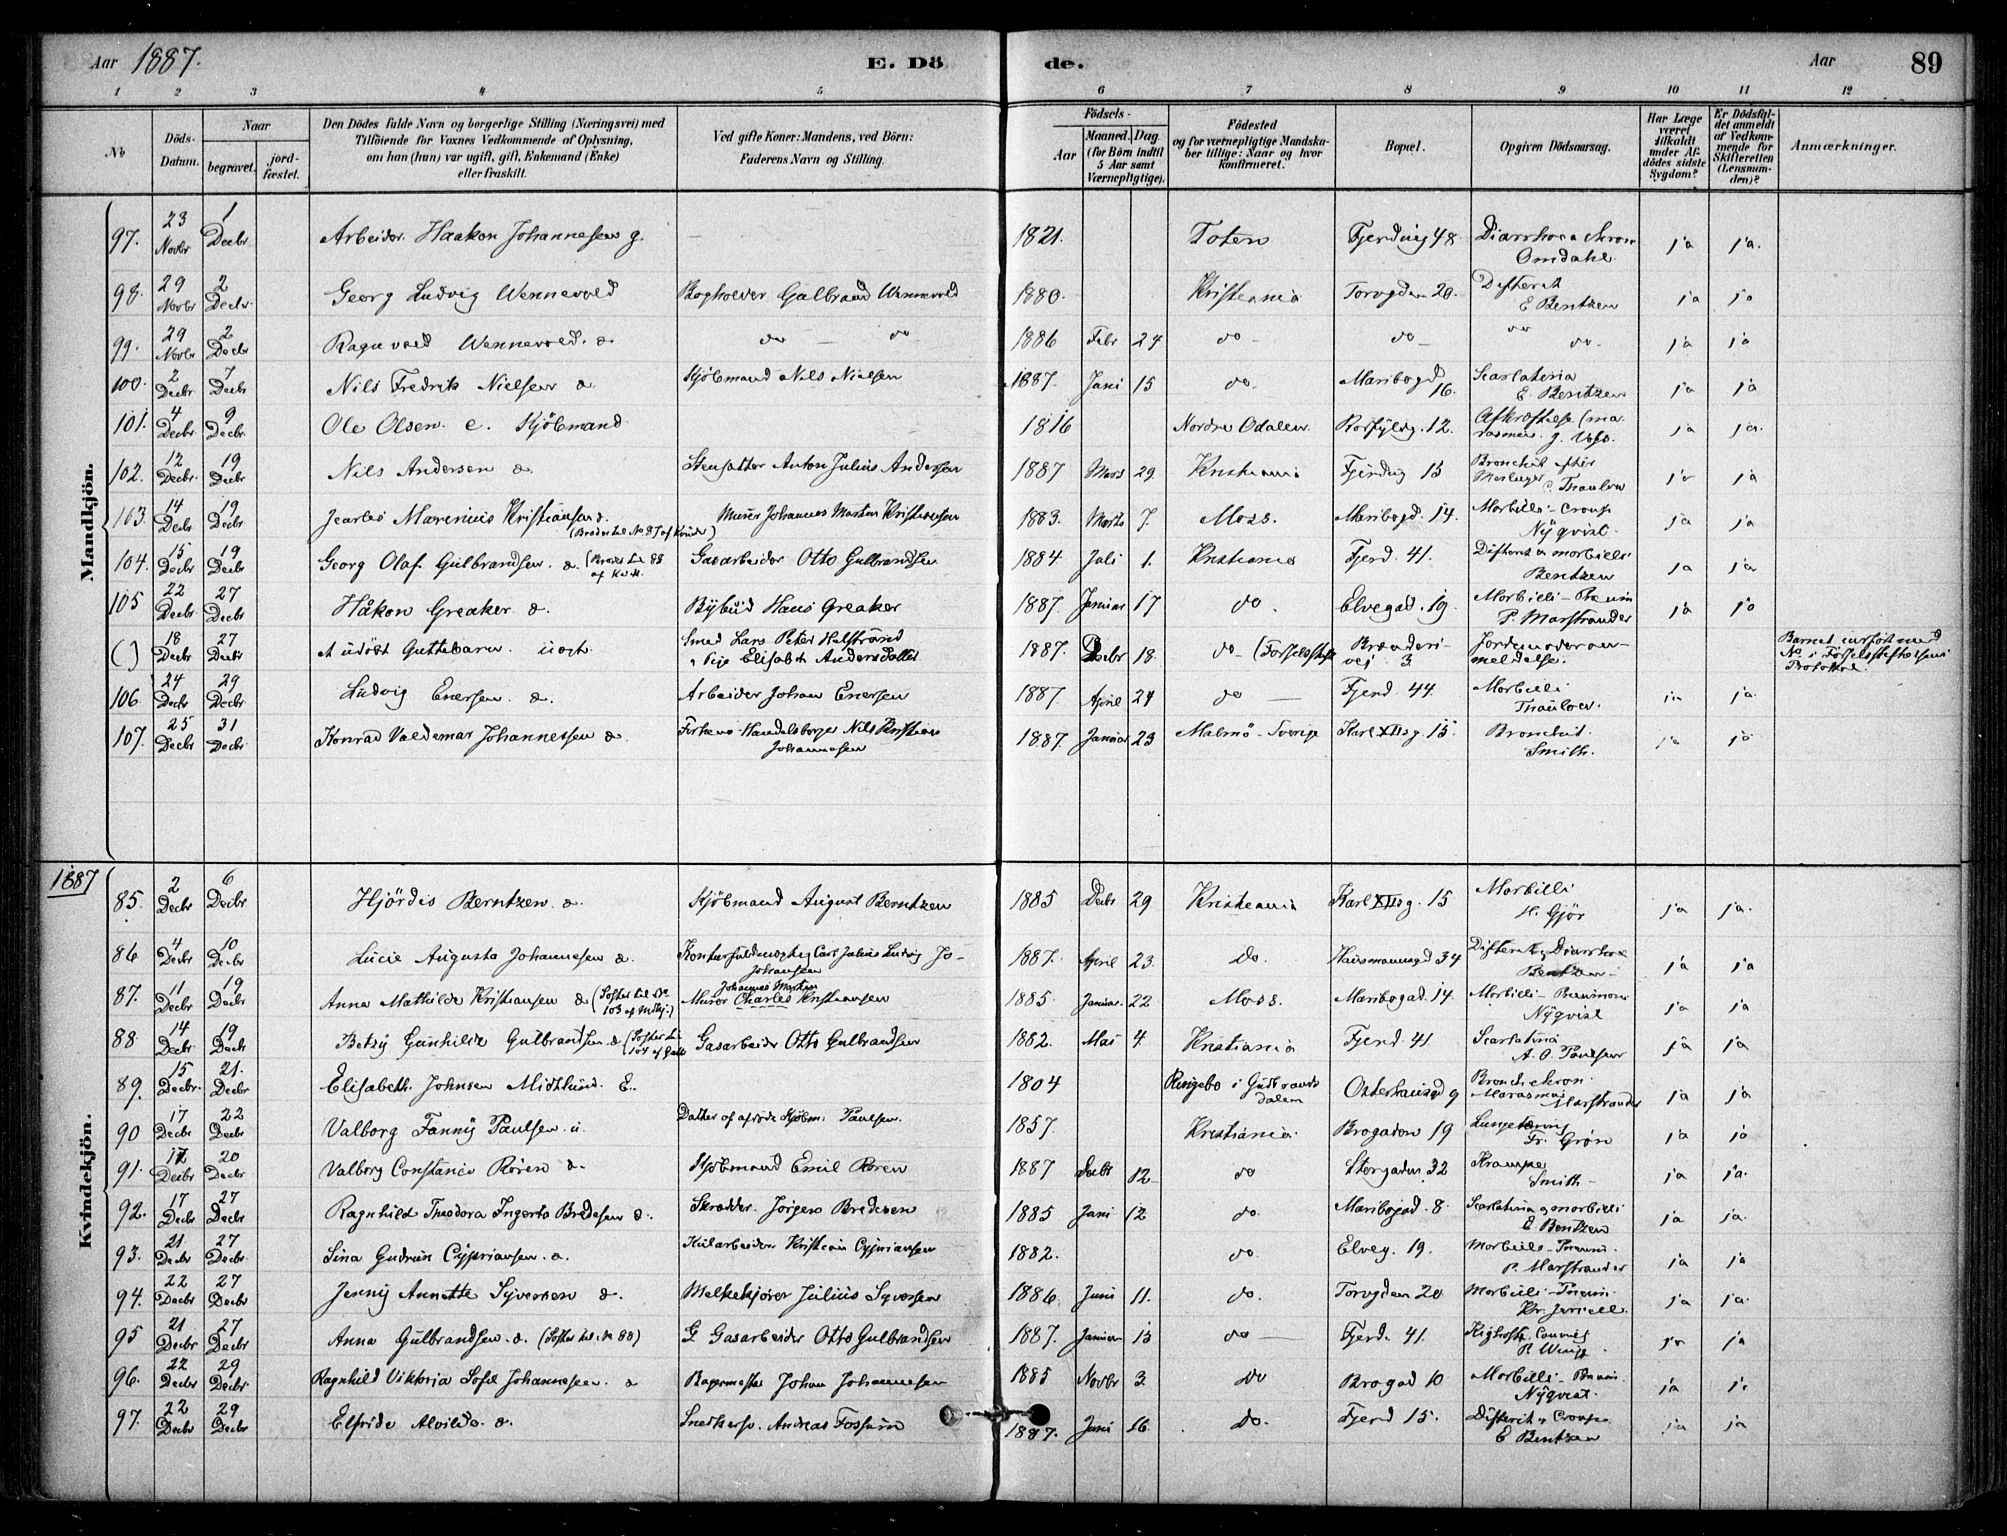 Aar 1887.
E. Dö
de.
Aar
89
1 2 3 4 5 6 7 8 9 10 11 12
No
Döds-Datum.
Naar
begravet.
jord-fæstet.
Den Dödes fulde Navn og borgerlige Stilling (Næringsvei) med
Tilföiende for Voxnes Vedkommende af Oplysning,
om han (hun) var ugift, gift, Enkemand (Enke)
eller fraskilt.
Ved gifte Koner: Mandens, ved Börn:
Faderens Navn og Stilling.
Födsels-
Aar
Maaned. Dag.
(for Börn indtil
5 Aar samt
Værnepligtige).
Födested
og for værnepligtige Mandska-
ber tillige: Naar og hvor
konfirmeret.
Bopæl.
Opgiven Dödsaarsag.
Har Læge
været
tilkaldt
under Af-
dödes sidste
Sygdom?
Er Dödsfal-
det anmeldt
af Vedkom-
mende for
Skifteretten
(Lensman-
den)?
Anmærkninger.
Mandkjön.
97. 23 Novbr 1 Decbr Arbeider Haakon Johannesen g. 1821. Toten Fjerding 48 Diarrhoea chron Omdahl ja ja.
98. 29 Novbr 2 Decbr. Georg Ludvig Wennevold Bogholder Gulbrand Wennevold 1880. Kristiania Torvgden 20. Difterit E Bentzen ja ja
99. 29 Novbr 2 Decbr Ragnvald Wennevold. d. do — do 1886 Febr 24 do - do — do do - ja ja
100. 2 Decbr. 7 Decbr Nils Fredrik Nielsen d. Kjöbmand Nils Nielsen 1887. Juni 15 do. Maribogd 16. Scarlatina E. Bentzen ja ja
101. 4 Decbr 9 Decbr. Ole Olsen. e. Kjöbmand 1816 Nordre Odalen 12. Afkræftelse (ma-rasmus. g. Voss. ja ja.
102. 12 Decbr. 19 Decbr. Nils Andersen d. Stensatter Anton Julius Andersen 1887 Mars 29. Kristiania Fjerding 15 Bronchit efter Thaulow ja ja
103. 14 Decbr 19 Decbr Marenius Kristiansen d. (Broder til No 87 af Kvindk) Murer Johannes Morten Kristiansen 1883. Marts 7. Moss. Maribogd. 14. Morbilli - Croup Nyqvist. ja ja
104. 15 Decbr 19 Decbr Georg Olaf Gulbrandsen. d. (Broder til 88 af Kvk. Gasarbeider Otto Gulbrandsen 1884. Juli 1. Kristiania Fjerd. 41. Difterit & morbilli Bentzen ja ja
105 22 Decbr 27 Decbr. Håkon Greaker. d. Bybud Hans Greaker 1887. Januar 17 do. Elvegad. 19. Morbilli - Pneum P. Marstrander ja ja
( ) 18 Decbr 27 Decbr et udöbt Guttebarn. uægt Smed Lars Peter Halfstrand & Pige Elisabeth Andersdatter 1887. Decbr 18. do (Fodselsstift Brænderi-vej 3 Jordemoderan-meldelse. Barnet indfört med No. i Födselsstiftelsens Protokol.
106. 24 Decbr 29 Decbr. Ludvig Enersen. d. Arbeider Johan Enersen 1887. April 24 do — Fjerd. 44. Morbilli Thaulow. ja ja.
107. 25 Decbr 31 Decbr. Konrad Valdemar Johannessen d. Nils Kristian Johannesen 1887. Januar 23 Malmö - Sverige Karl XIIsg. 15. Bronchit. Smith. ja ja
1887
Kvindekjön.
85. 2 Decbr 6 Decbr Hjördis Berntzen. d. Kjöbmand August Berntzen 1885 Decbr 29. Kristiania Karl XIIsg. 15 Morbilli H. Gjör ja ja.
86 4 Decbr 10 Decbr Lucie Augusta Johannesen d. Kontorfuldmægtig Carl Julius Ludvig Jo-Johansen 1887. April 23. do. Hausmannsgd 34 Difterit & Diarrhoe Bentzen - ja ja
87. 11 Decbr 19 Decbr Anna Mathilde Kristiansen d. (Soster til No 103 af Mkj.) Murer Johannes Morten Charles Kristiansen 1885. Januar. 22 Moss. Maribogad. 14. Morbilli - Pneumoni Nyqvist ja ja
88. 14 Decbr. 19 Decbr Betsy Gunhilde Gulbrandsen d (Soster til 104 af Gasarbeider Otto Gulbrandsen 1882. Mai 4. Kristiania Fjerd 41. Scarlatina A. O. Paulsen ja ja
89. 15 Decbr. 21. Decbr Elisabeth Johnsen Midtlund. E. 1804 Ringebo i Gudbrands dalen Osterhausgd 9 Bronch. chron. Marasmus Marstrander ja ja
90 17 Decbr 22 Decbr Valborg Fanny Paulsen. u. Datter af afdöde Kjöbm. Paulsen. 1857. Kristiania Brogaden 19 Lungetæring Fr. Grön ja ja
91. 12 Decbr 20 Decbr Valborg Constance Roren d. Kjöbmand Emil Roren 1887 Decbr 12 do Storgaden 32 Krampe Smith - ja ja.
92. 17 Decbr 27 Decbr Ragnhild Theodora Ingerto Bredesen d. Skrædder. Jörgen Bredesen 1885 Juni 12 do. Maribogad. 8. Scarlatina & morbilli E. Bentzen ja ja.
93. 21 Decbr 27 Decbr. Lina Gudrun Cypriansen. d. Kularbeider Kristian Cypriansen 1882. do. Elveg. 19. Morbilli - Pneum. P. Marstrander ja ja
94. 22 Decbr 27 Decbr. Jenny Annette Syversen d. Melkekjörer Julius Syversen 1886. Juni 11. do. Torvgden 20 Morbilli - Pneum. ja ja.
95 21 Decbr 27 Decbr Anna Gulbrandsen. d. (Soster til No 88) G. Gasarbeider Otto Gulbrandsen 1887. Januar 15 do — Fjerd. 41. Kighoste, P. Winge ja ja
96. 22 Decbr 29 Decbr. Ragnhild Viktoria Sofie Johannesen. d Bagermester Johan Johannesen 1885 Novbr 3. do Brogad 10 Morbilli - Pneum. Nyqvist. ja ja
97. 22 Decbr 29 Decbr. Elfride Alvilda. d. Snedkersv. Andreas Fossum 1887. Juni 16. do. Fjerd 15. Difterit & Croup E Bentzen ja ja